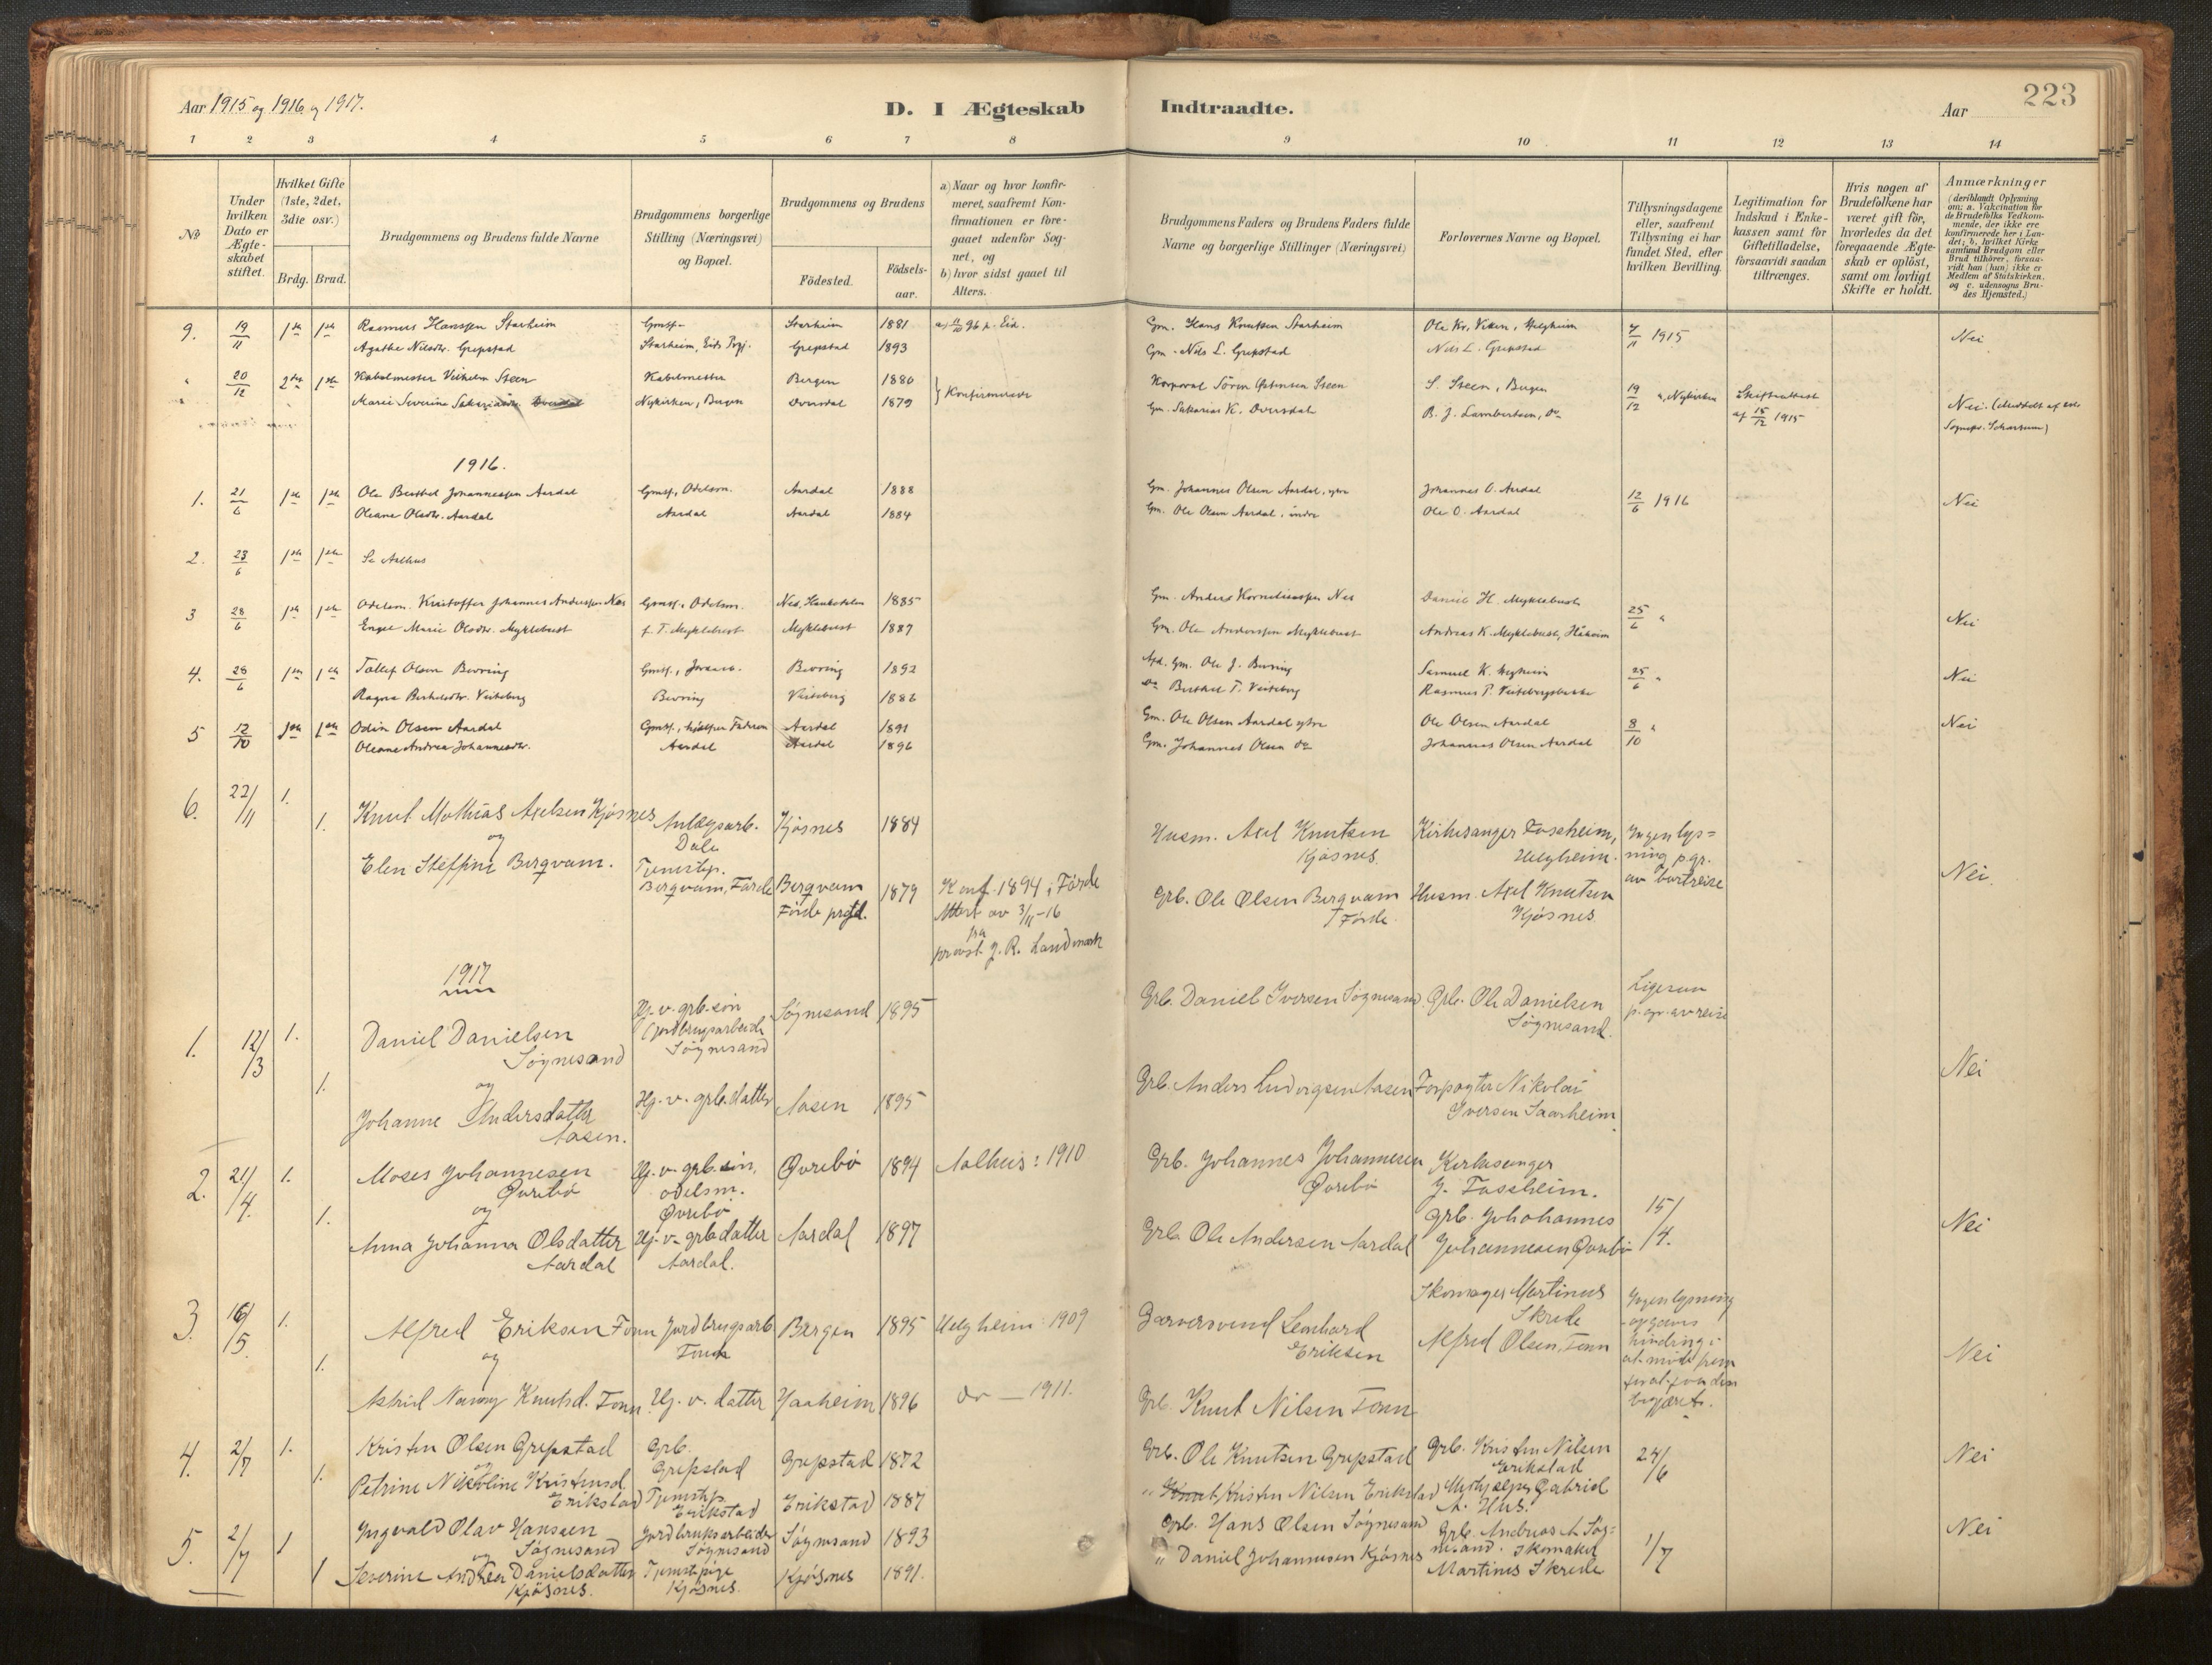 Aar 1915 og 1916 og 1917.
D. I Ægteskab Indtraadte.
Aar
223
1 2 3 4 5 6 7 8 9 10 11 12 13 14
No
Under hvilken Dato er Ægteskabet stiftet.
Hvilket Gifte (1ste, 2det, 3die osv.)
Brdg. Brud.
Brudgommens og Brudens fulde Navne
Brudgommens borgerlige Stilling (Næringsvei) og Bopæl.
Brudgommens og Brudens
Födested.
Födsels-aar.
a) Naar og hvor konfirmeret, saafremt Konfirmationen er foregaaet udenfor Sognet, og
b) hvor sidst gaaet til Alters.
Brudgommens Faders og Brudens Faders fulde Navne og borgerlige Stillinger (Næringsvei)
Forlovernes Navne og Bopæl.
Tillysningsdagene eller, saafremt Tillysning ei har fundet Sted, efter hvilken Bevilling.
Legitimation for Indskud i Enkekassen samt for Giftetilladelse, forsaavidt saadan tiltrænges.
Hvis nogen af Brudefolkene har været gift för, hvorledes da det foregaaende Ægteskab er oplöst, samt om lovligt Skifte er holdt.
Anmærkninger (deriblandt Oplysning om: a. Vakcination for de Brudefolks Vedkommende, der ikke ere konfirmerede her i Landet; b. hvilket Kirkesamfund Brudgom eller Brud tilhörer, forsaavidt han (hun) ikke er Medlem af Statskirken. og c. udensogns Brudes Hjemsted.)
9. 19/11 1ste 1ste Rasmus Hanssen Starheim Gmsf. Starheim 1881 Eid. Gm. Hans Knutsen Starheim Helgheim 7/11 1915 Nei
Agathe Nilsdtr. Grepstad Starheim, Eids Prgj. Grepstad 1893 Gm. Nils L. Grepstad Nils L. Grepstad
20/12 2det 1ste Kabelmester Vilhelm Steen Kabelmester Bergen 1880 Konfirmerede Korporal Sören Steen S. Steen, Bergen 19/12 Nykirken Skifteattest
Marie Severine Nykirken, Bergen Dvergsdal 1879 Gm. Sakarias K. Dvergsdal B. J. Lambertsen, do af 15/12 1915 Nei. (Meddelt af
1916.
1. 21/6 1ste 1ste Ole Berthel Johannessen Aardal Gmsf., Odelsm. Aardal 1888 Gm. Johannes Olsen Aardal, ytre Johannes O. Aardal 12/6 1916 Nei
Oleane Olsdtr. Aardal Aardal Aardal 1884 Gm. Ole Olsen Aardal, indre Ole O. Aardal
2. 23/6 1ste 1ste Se Aalhus
3 28/6 1ste 1ste Odelsm. Kristoffer Johannes Anderssen Nes Gmsf. Odelsm. Nes, 1885 Gm. Anders Korneliussen Nes Daniel H. Myklebust 25/6 " Nei
Engel Marie Olsdtr. Myklebust f. T. Myklebust Myklebust 1887 Gm. Ole Anderssen Myklebust Andreas K. Myklebust,
4. 28/6 1ste 1ste Tollef Olsen Bevring Gmsf., Bevring 1892 Afd. Gm. Ole J. Bevring Samuel K. Helgheim 25/6 " Nei
Ragna Berthelsdtr. Veiteberg Bevring Veiteberg 1886 do Berthel T. Veiteberg Rasmus P.
5 12/10 1ste 1ste Odin Olsen Aardal Gmsf., hjælper Faderen Aardal 1891 Gm. Ole Olsen Aardal ytre Ole Olsen Aardal 8/10 " Nei
Oleane Andrea Johannesdtr. Aardal Aardal 1896 Gm. Johannes Olsen do Johannes Olsen Aardal
6. 22/11 1. Knut Mathias Axelsen Kjøsnes Anlægsarb. Kjøsnes 1884 Husm. Axel Knutsen Kirkesanger Fosheim, Ingen lys=
1. og Dale Kjøsnes. Helgheim. ning p.gr.
Elen Steffine Bergvam. Tjenestp. av bortreise
Bergvam, Førde Bergvam 1879 Konf. 1894 i Førde Grb. Ole Olsen Bergvam Husm. Axel Knutsen Nei.
Førde prgtd. Attest av 3/11-16 Førde. Kjøsnes
fra
provst J. R. Landmark
1917
1. 12/3 1. Daniel Danielsen Hj. v. grb. søn Søgnesand 1895 Grb. Daniel Iversen Søgnesand. Grb. Ole Danielsen Ligesaa
Søgnesand (jordbrugsarbeide Søgnesand. p. gr. av reise
1. og Søgnesand
Johanne Andersdatter Hj. v. grb. datter Aasen 1895 Grb. Anders Ludvigsen Aasen Forpagter Nikolai Nei
Aasen. Iversen Saarheim.
2. 21/4. 1. Moses Johannesen Hj. v. grb. søn, Øvrebø 1894 Aalhus: 1910 Grb. Johannes Johannesen Kirkesanger
Øvrebø odelsm. Øvrebø J. Fossheim.
1. og Øvrebø grb. Johohannes 15/4. Nei
Anna Johanna Olsdatter Hj. v. grb datter Aardal 1897 Grb. Ole Andersen Aardal Johannesen Øvrebø
Aardal Aardal.
3. 16/5. 1. Alfred Eriksen Fonn Jordbrugsarb Bergen 1895 Helgheim 1909 Garversvend Lenhard Skomager Martinus Ingen lysning
1. og Fonn Eriksen Skrede hindring i
Alfred Olsen, Fonn Nei
Astrid Nanny Knutsd. Fonn Hj. v. datter Jaaheim 1896 do — 1911. Grb. Knut Nilsen Fonn begjæret.
4. 2/7 1. Kristen Olsen Grepstad grb. Grepstad 1872 Grb. Ole Knutsen Grepstad Grb. Kristen Nilsen 24/6 Nei
1. og Grepstad Erikstad
Petrine Nikoline Kristensd. Tjenestp. Erikstad 1887 " Kristen Nilsen Erikstad Gabriel
Erikstad Erikstad A. Hus.
5. 2/7 1 Ingvald Olav Hanssen Jordbruksarbeider Søgnesand 1893 Grb. Hans Olsen Søgnesand Grb. Andreas A. Søg= 1/7 Nei
og Søgnesand Søgnesand nesand. Skomaker
1 Severine Andrea Danielsdatter Tjenestpige Kjøsnes 1891. " Daniel Johannesen Kjøsnes Martinus Skrede
Kjøsnes. Kjøsnes.